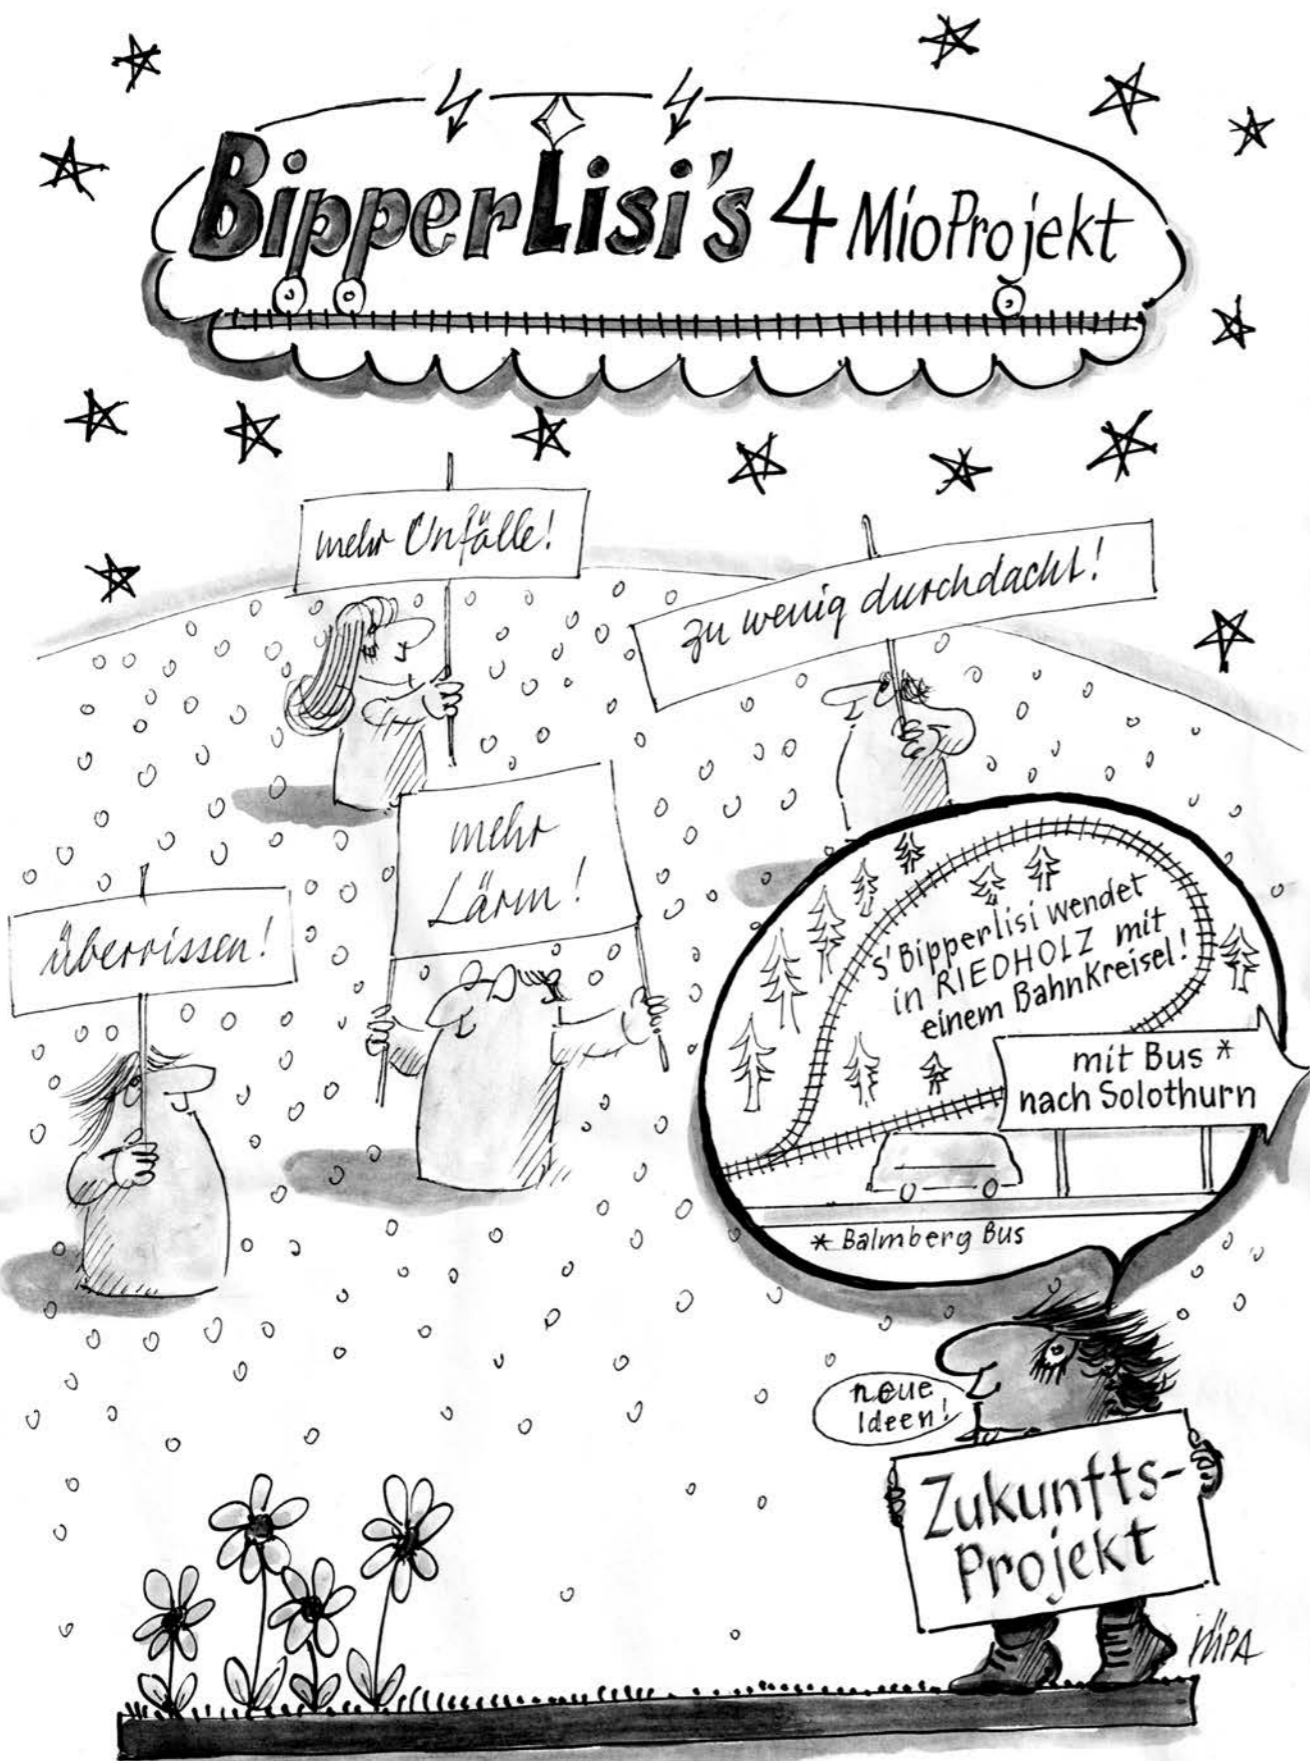 BipperLisi's 4 MioProjekt
mehr Unfälle!
zu wenig durchdacht!
mehr
Lärm!
überrissen!
s'Bipperlisi wendet
in RIEDHOLZ mit
einem BahnKreisel!
mit Bus *
nach Solothurn
* Balmberg Bus
neue
Ideen!
Zukunfts-
Projekt